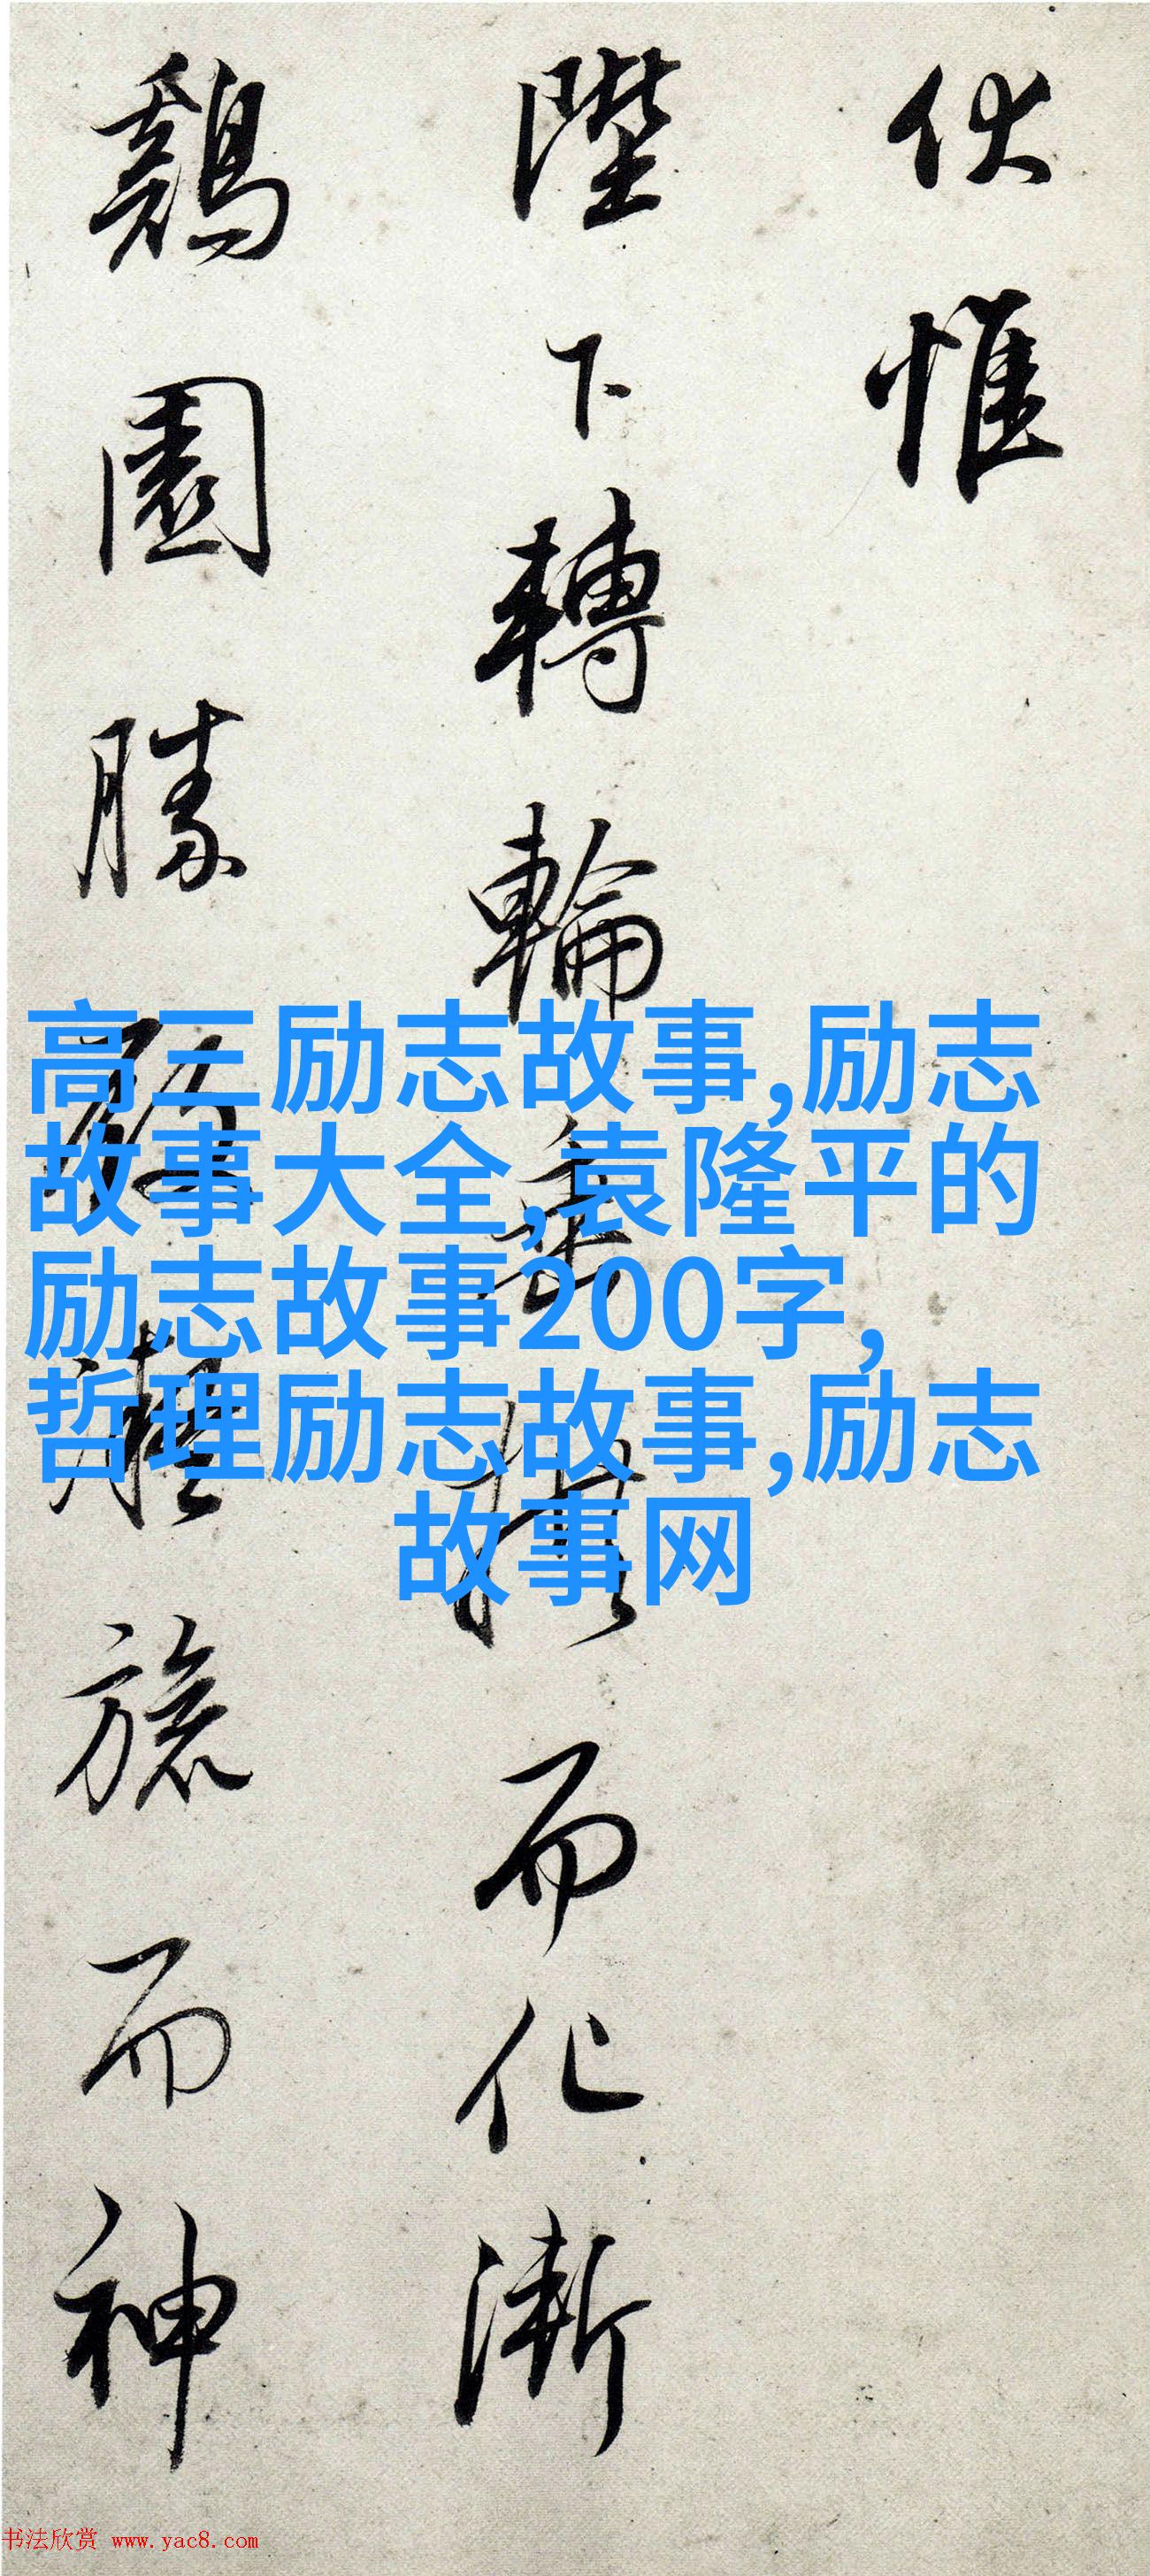 伏惟
陛下轉輪垂拱而化漸
鷄園勝殿凝旒而神
高三励志故事,励志
故事大全,袁隆平的
励志故事200字,
哲理励志故事,励志
故事网
书法欣赏 www.yac8.com